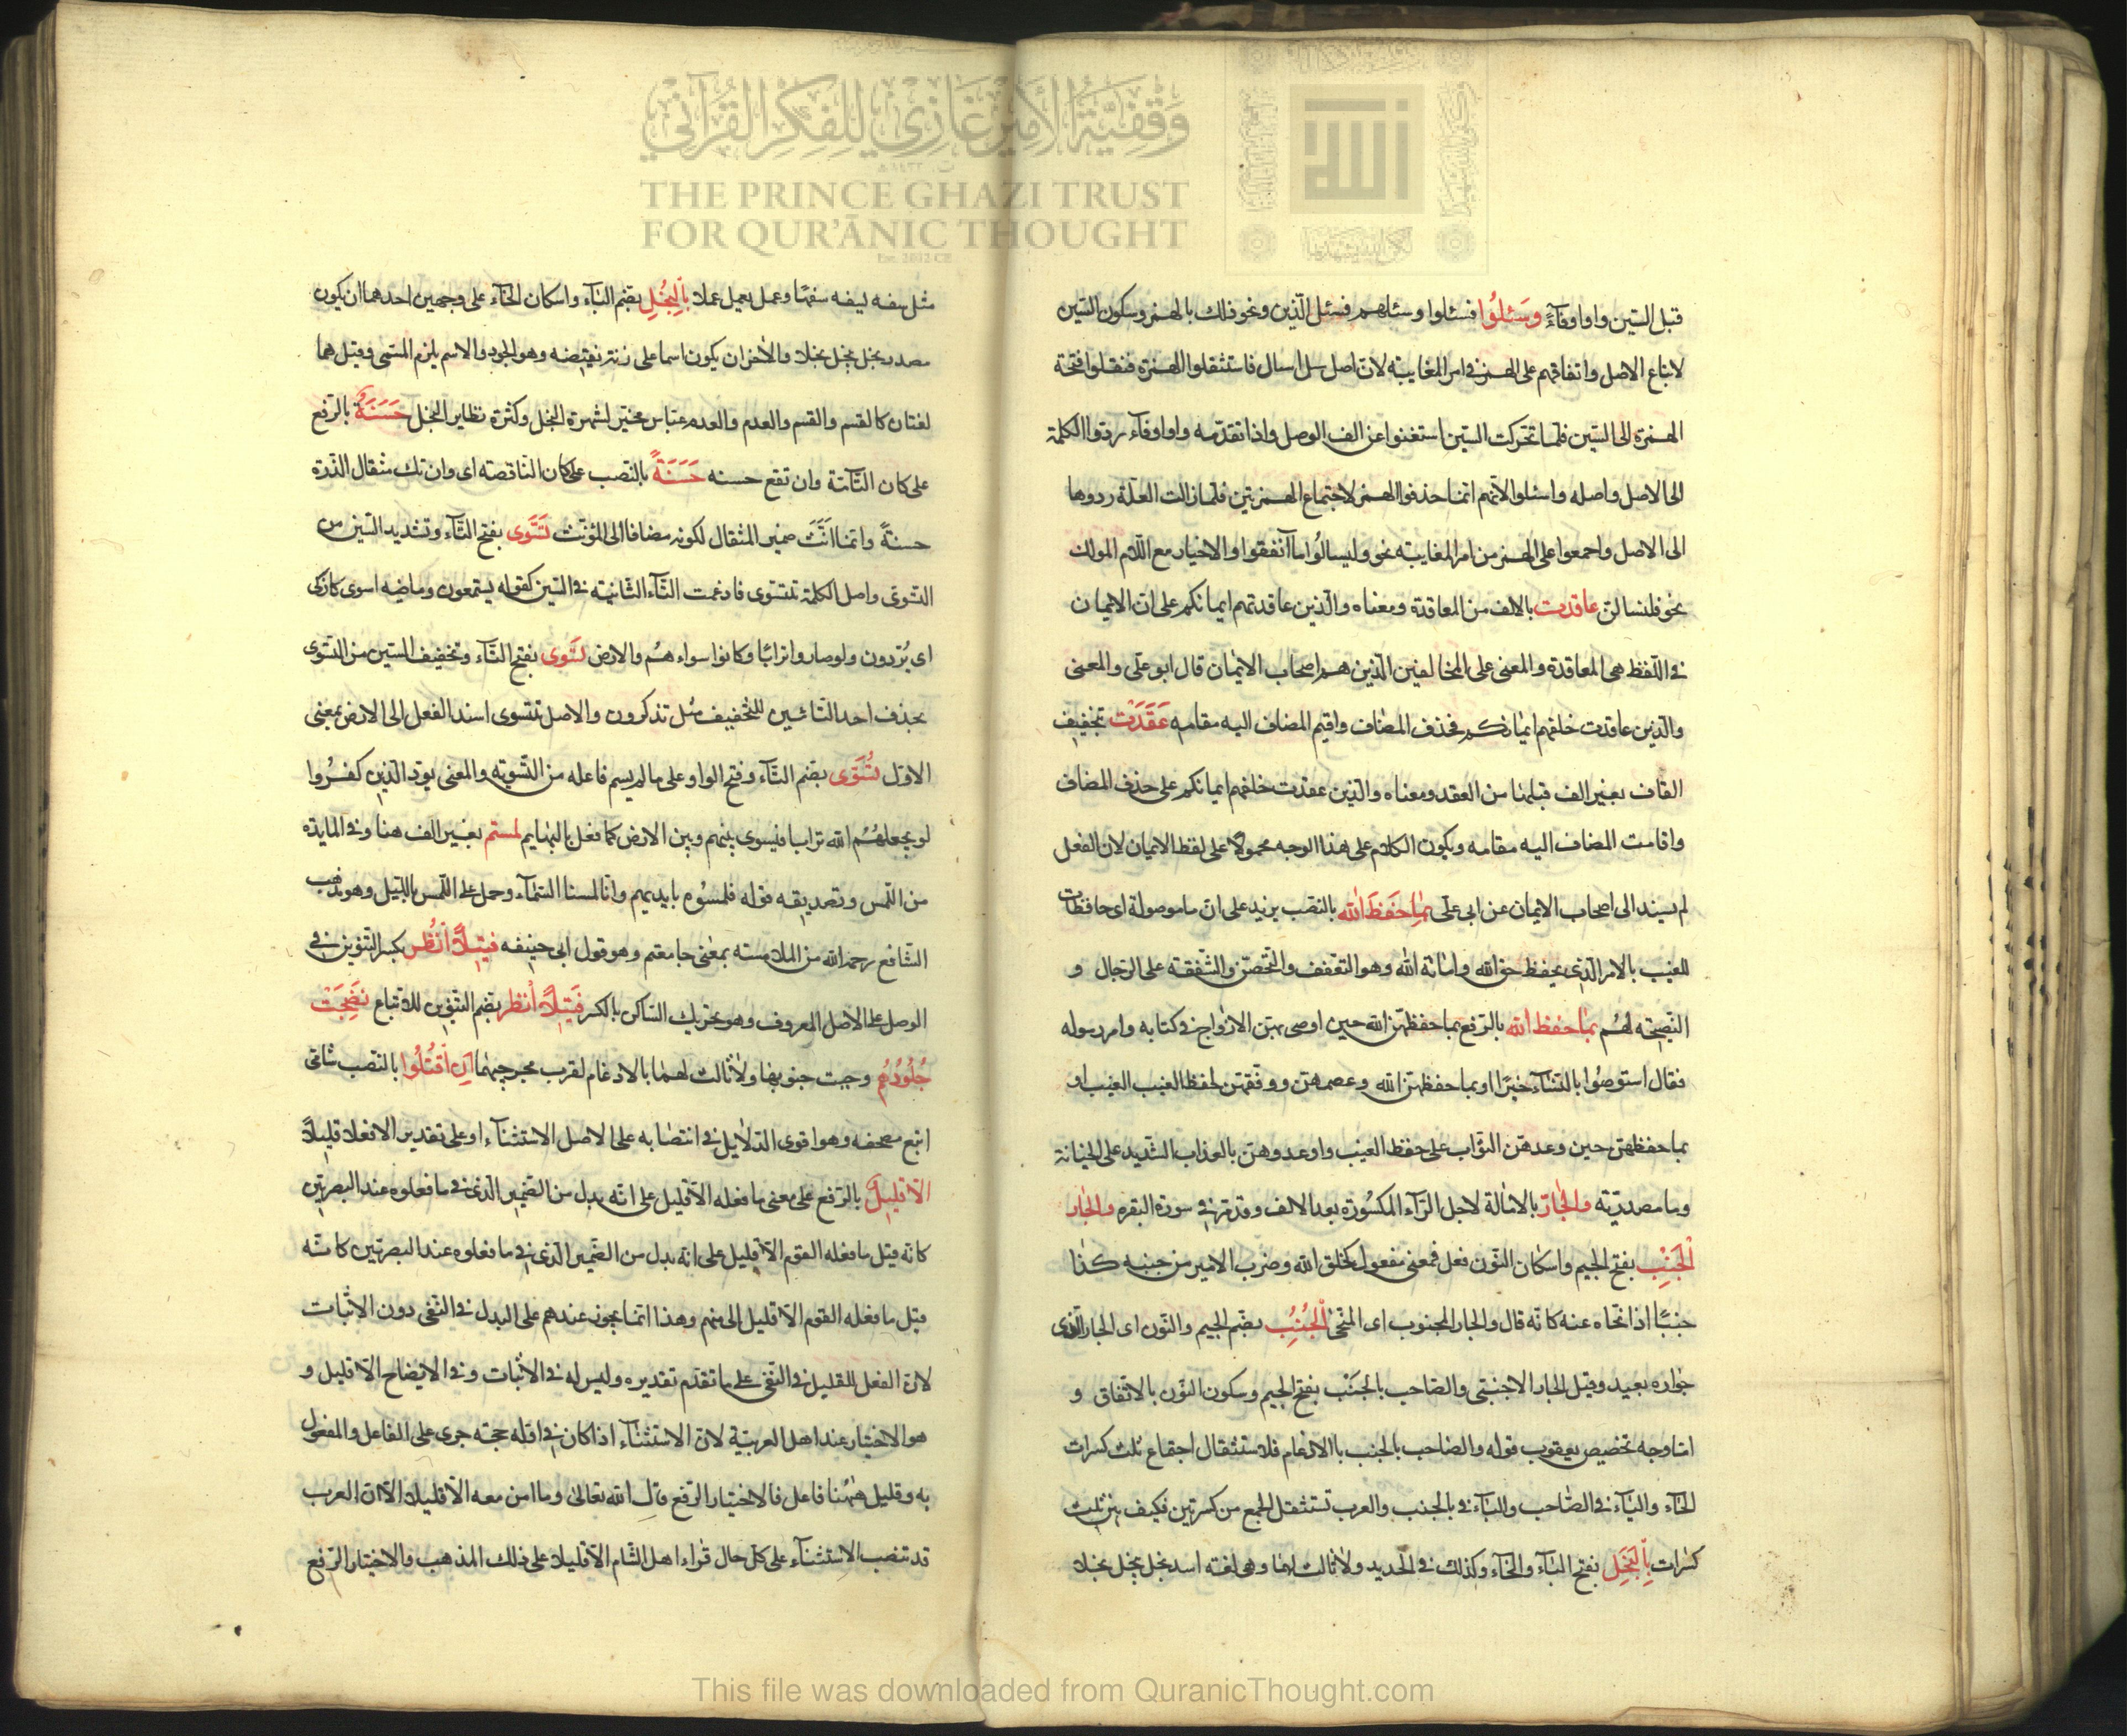 وقفية الأمير غازي للفكر القرآني
THE PRINCE GHAZI TRUST
FOR QUR'ĀNIC THOUGHT
Est. 2012 CE
قبل السين واوا وفاءً وسئلوا فسئلوا وسئلهم فسئل الذين ونحو ذلك بالهمز وسكون السين
لاتباع الاصل واتفاقهم على الهمز في امر المغايبة لان اصل سل اسال فاستثقلوا الهمزة فنقلوا فتحة
الهمزة الى السين فلما تحركت السين استغنوا عن الف الوصل واذا تقدمه واوا وفاء ردوا الكلمة
الى الاصل واصله واسئلوا لانهم انما حذفوا الهمز لاجتماع الهمزتين فلما زالت العلة ردوها
الى الاصل واجمعوا على الهمز من امر المغايبة نحو وليسالوا ما انفقوا والاخيار مع اللام المولك
نحو فلنسالن عاقدت بالالف من المعاقدة ومعناه والذين عاقدتهم ايمانكم على ان الايمان
في اللفظ هى المعاقدة والمعنى على المخالفين الذين هم اصحاب الايمان قال ابو على والمعنى
والذين عاقدت خلفهم ايمانكم فحذف المضاف واقيم المضاف اليه مقامه عَقَدَت بتخفيف
القاف بغير الف قبلها من العقد ومعناه والذين عقدت خلفهم ايمانكم على حذف المضاف
واقامت المضاف اليه مقامه ويكون الكلام على هذا الوجه محمولا على لفظ الايمان لان الفعل
لم يسند الى اصحاب الايمان عن ابى على بما حفظ الله بالنصب يزيد على ان ما موصولة اى حافظات
للغيب بالامر الذى يحفظ حق الله وامانة الله وهو التعفف والتحصن والشفقة على الرجال و
النصيحة لهم بما حفظ الله بالرفع بما حفظهن الله حين اوصى بهن الازواج في كتابه وامر رسوله
فقال استوصوا بالنساء خيرا او بما حفظهن الله وعصمهن ووفقهن لحفظ الغيب الغيب او
بما حفظهن حين وعدهن الثواب على حفظ الغيب واوعدوهن بالعذاب الشديد على الخيانة
وما مصدرية والجار بالامالة لاجل الراء المكسورة بعد الالف وقد مر في سورة البقره والجار
الجَنْبِ بفتح الجيم واسكان النون فعل فمعنى مفعول كخلق الله وضرب الامير من جنبه كذا
جنبًا اذا نحاه عنه كانه قال والجار المجنوب اى المنحى الجُنُبِ بضم الجيم والنون اى الجار الذى
جواره بعيد وقيل الجار الاجنبى والصاحب بالجَنْب بفتح الجيم وسكون النون بالاتفاق و
اما وجه تخصيص يعقوب قوله والصاحب بالجنب بالادغام فلاستثقال اجتماع ثلث كسرات
الحاء والباء في الصاحب والباء في بالجنب والعرب تستثقل الجمع من كسرتين فكيف بين ثلث
كسرات بالبَخَل بفتح الباء والخاء وكذلك في الحديد ولا ثالث لهما وهى لغة اسد بخل يبخل بخلا
مثل سفه يسفه سفها وعمل يعمل عملا بالبُخْلِ بضم الباء واسكان الخاء على وجهين احدهما ان يكون
مصدر بخل يبخل بخلا والاخر ان يكون اسما على زنة نقيضه وهو الجود والاسم يلزم المسمى وقيل هما
لغتان كالقسم والقسم والعدم والعدم عباس مخير لشهرة البخل وكثرة نظاير البخل حَسَنَةٌ بالرفع
على كان التآمة وان تقع حسنه حَسَنَةً بالنصب على كان الناقصة اى وان تك مثقال الذرة
حسنةً وانما انَّثَ ضمير المثقال لكونه مضافا الى المؤنث تَسَّوَّى بفتح التاء وتشديد السين من
التسوى واصل الكلمة تتسوى فادغمت التاء الثانية في السين كقوله يسمعون وماضيه اسوى كازكى
اى يُردون ولو صاروا ترابًا وكانوا سواء هم والارض تَسَوى بفتح التاء وتخفيف السين من التسوى
بحذف احد التائين للتخفيف مثل تذكرون والاصل تتسوى اسند الفعل الى الارض بمعنى
الاول تُسَوَّى بضم التاء وفتح الواو على ما لم يسم فاعله من التسوية والمعنى يود الذين كفروا
لو يجعلهم الله ترابا فيسوى بينهم وبين الارض كما فعل بالبهايم لمستم بغير الف هنا وفي المايدة
من اللمس وتصديقه قوله فلمسوه بايديهم وانا لمسنا السماء وحمل على اللمس بالليل وهو مذهب
الشافع رحمه الله من الملامسة بمعنى جامعتم وهو قول ابى حنيفه فتيلاً انظر بكسر التنوين في
الوصل على الاصل المعروف وهو تحريك الساكن بالكسر فتيلاً أُنظر بضم التنوين للاتباع نضجت
جُلُودُهُم وجبت جنوبها ولا ثالث لهما بالادغام لقرب مخرجهما ان اقتُلُوا بالنصب شامى
اتبع مصحفه وهو اقوى الدلايل في انتصابه على الاصل الاستثناء او على تقدير الا فعلا قليلاً
الا قليلٌ بالرفع على معنى ما فعله الا قليل على انه بدل من الضمير الذى في ما فعلوه عند البصريين
كانه قيل ما فعله القوم الا قليل على انه بدل من الضمير الذى في ما فعلوه عند البصريين كانه
قيل ما فعله القوم الا قليل الى منهم وهذا انما يجوز عندهم على البدل في النفى دون الاثبات
لان الفعل للقليل في النفى على ما تقدم تقديره وليس له في الاثبات وفي الايضاح الا قليل و
هو الاختيار عند اهل العربية لان الاستثناء اذا كان في اقله حجته جرى على الفاعل والمفعول
به وقليل ههنا فاعل فالاختيار الرفع قال الله تعالى وما امن معه الا قليل الا ان العرب
قد تنصب الاستثناء على كل حال قراء اهل الشام الا قليلا على ذلك المذهب والاختيار الرفع
This file was downloaded from QuranicThought.com